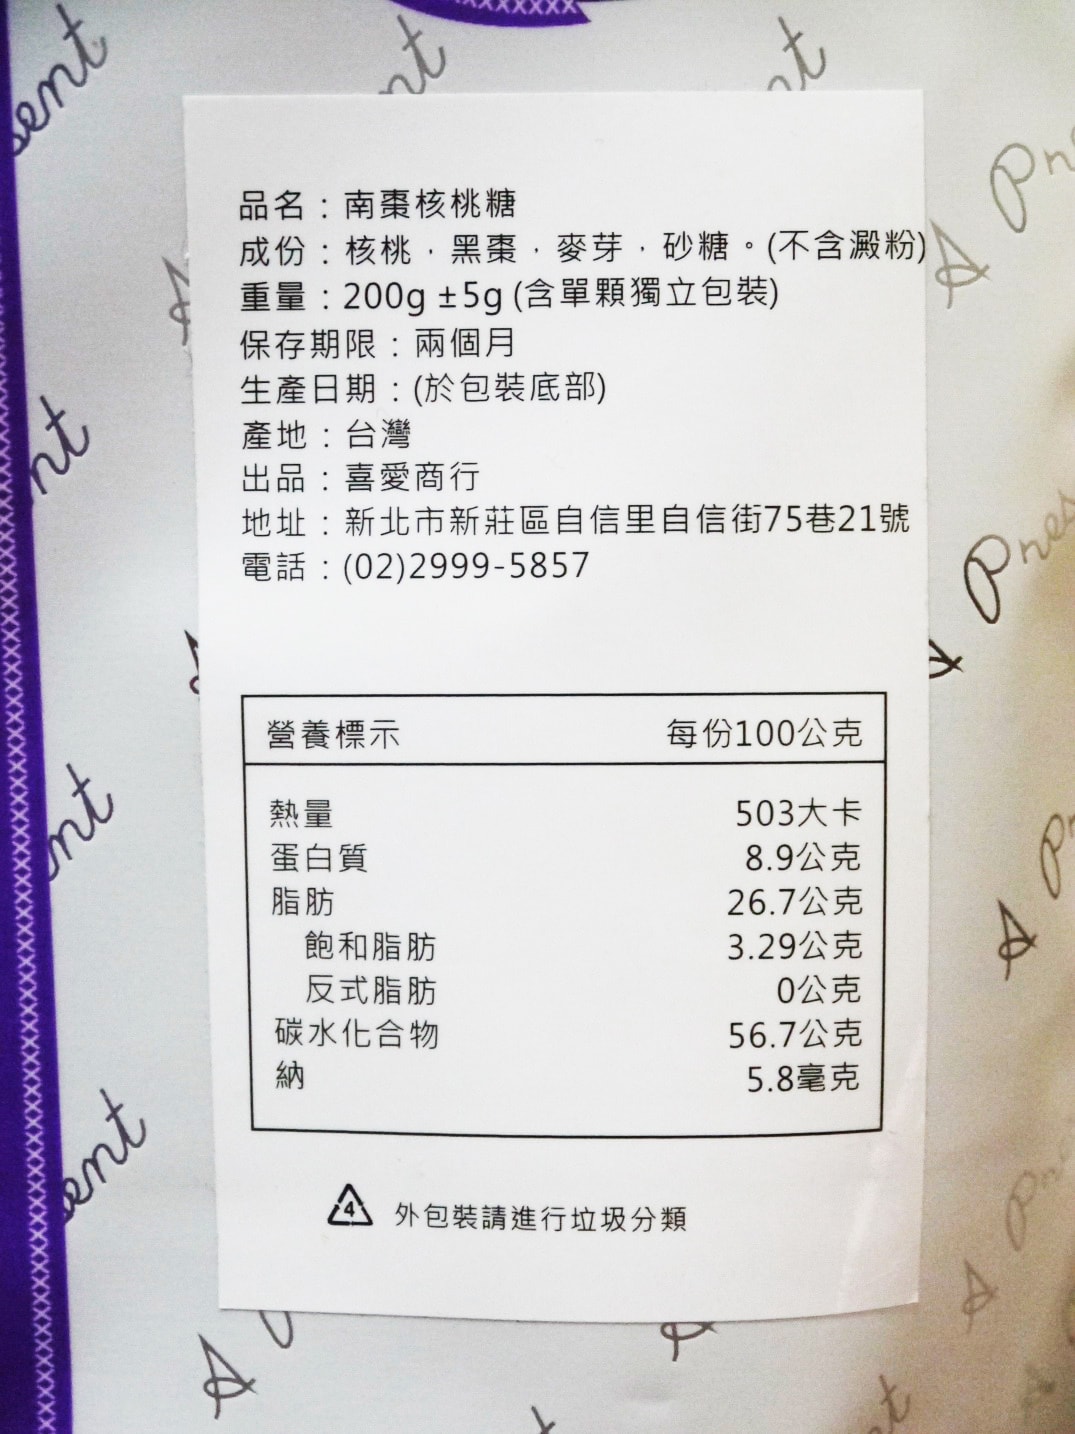 品名：南棗核桃糖
成份：核桃，黑棗，麥芽，砂糖。(不含澱粉)
重量：200g ±5g (含單顆獨立包裝)
保存期限：兩個月
生產日期：(於包裝底部)
產地：台灣
出品：喜愛商行
地址：新北市新莊區自信里自信街75巷21號
電話：(02)2999-5857
營養標示 每份100公克
熱量 503大卡
蛋白質 8.9公克
脂肪 26.7公克
飽和脂肪 3.29公克
反式脂肪 0公克
碳水化合物 56.7公克
納 5.8毫克
4 外包裝請進行垃圾分類